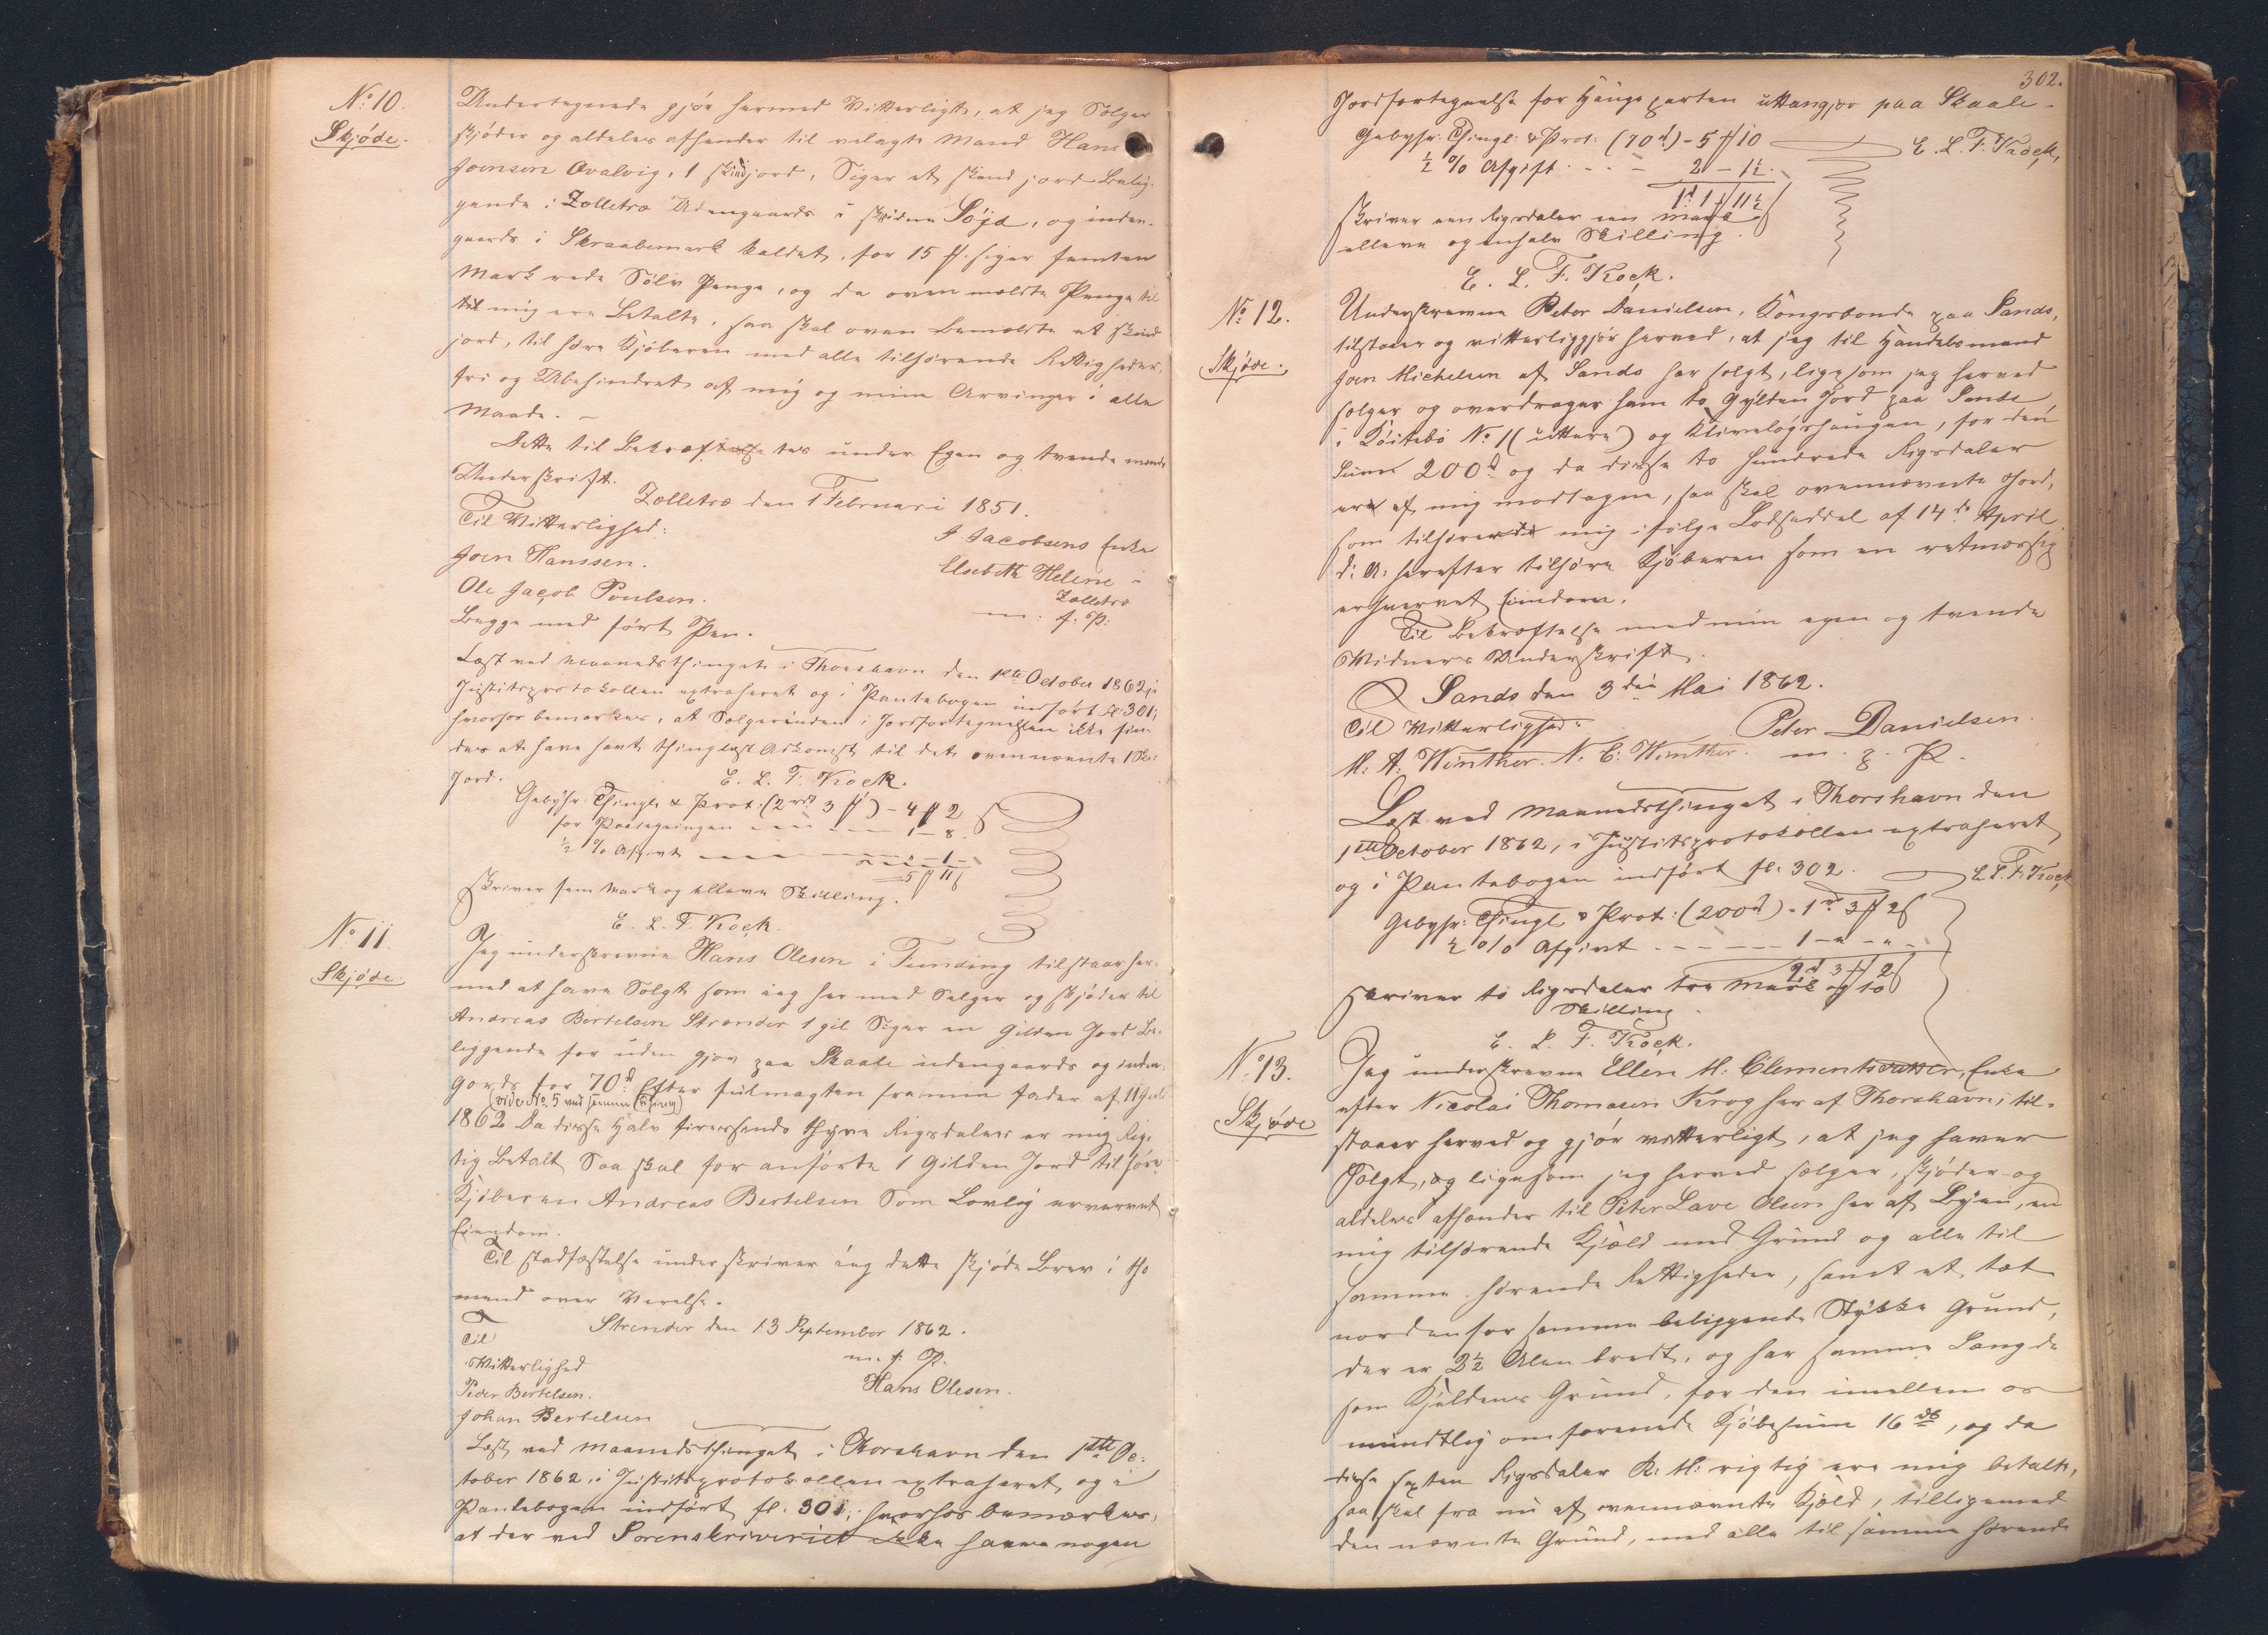 No 10.
Skjøde.
Undertegnede gjør hermed Vitterligt, at jeg Sælger
skjøder og aldeles afhender til velagte Mand Hans
Joensen Qvalvig, 1 skindjord, Siger et skind jord Belig-
gende i Zelletræ Udengaards i skiden Søjd, og inden-
gaards i Skraabemark kaldet, for 15 ß. siger femten
Mark rede Sølv Penge, og da oven meldte Penge til
til mig ere Betalte, saa skal oven Bemeldte et skind
jord, til høre Kjøberen med alle tilhørende Rettigheder,
fri og Ubehindret af mig og mine Arvinger i alle
Maade. –
Dette til Bekræftelse tes under Egen og tvende mænds
Underskrift.
Zelletræ den 1 Februari 1851.
Til Vitterlighed:
J Jacobsens Enke
Joen Hanssen.
Elsebeth Helene i
Ole Jacob Poulsen.
Zelletræ
Begge med ført Pen.
m: f: P:
Læst ved Maanedsthinget i Thorshavn den 1ste October 1862, i
Justitsprotokollen extraheret og i Pantebogen indført fl. 301;
hvorhos bemærkes, at Sælgerinden i Jordfortegnelsen ikke fin-
des at have havt thinglæst Adkomst til det ovennævnte 1 Sk:
Jord.
E. L. F. Kock.
Gebyhr: Thingl: & Prot: (2 rd 3 ß) – 4 ß 2
for Paategningen – – – 1 – 8.
½ % Afgivt – – – – 1 –
5 ß 11
skriver fem Mark og elleve Skilling.
E. L. F. Kock.
No 11.
Skjøde.
Jeg underskrevne Hans Olesen i Funding tilstaar her-
med at have Solgt som ieg her med Selger og skjøder til
Andreas Bertelsen Strender 1 gil Siger en Gilden Jord Be-
liggende for uden gjov paa Skaale udengaards og inden-
gords for 70 d Efter fulmagten fra min fader af 11 Juli
(vide No 5 ved samme Thing)
1862 Da disse halv firesends tyve Rigsdaler er mig Rig-
tig Betalt Saa skal for anførte 1 Gilden Jord til høre
Kjøberen Andreas Bertelsen Som Lovlig ervervet
Eiendom.
Til stadfæstelse under skriver ieg dette skjøde Brev i to
mænd over Verelse.
Strender den 13 September 1862.
Til
Vitterlighed
m. f. P.
Peder Bertelsen.
Hans Olesen.
Johan Bertelsen
Læst ved Maanedsthinget i Thorshavn den 1ste Oc-
tober 1862, i Justitsprotokollen extraheret, og i
Pantebogen indført fl. 301; hvorhos bemærkes,
at der ved Sorenskriveriet ikke haves nogen
302.
Jordfortegnelse for Høngs parten uttangjov paa Skaale.
Gebyhr: Thingl: & Prot: (70 d) – 5 ß 10
E. L. F. Kock,
½ % Afgift – – – 2 – 1½.
1 d 1 ß 11½
skriver een Rigsdaler een Mark
elleve og enhalv Skilling.
E. L. F. Kock.
No 12.
Skjøde.
Underskrevne Peter Danielsen, Kongsbonde paa Sands,
tilstaaer og vitterliggjør herved, at jeg til Handelsmand
Joen Michelsen af Sands har solgt, ligesom jeg herved
sælger og overdrager ham to Gylden Jord paa Sande
i Köitebö No 1 (uttere) og Kliveløgshaugen, for den
Sum 200 d og da disse to hundrede Rigsdaler
ere af mig modtagne, saa skal ovennævnte Jord,
som tilhører mig ifølge Lodseddel af 14de April
d: A: herefter tilhøre Kjøberen som en retmæssig
erhvervet Eiendom.
Til Bekræftelse med min egen og tvende
Vidners Underskrift.
Sands den 3die Mai 1862.
Til Vitterlighed:
Peter Danielsen.
M. A. Winther. N. C. Winther.
m. f. P.
Læst ved Maanedsthinget i Thorshavn den
1ste October 1862, i Justitsprotokollen extraheret
og i Pantebogen indført fl. 302.
E. L. F. Kock,
Gebyhr: Thingl: & Prot: (200 d) – 1 d 3 ß 2 s
½ % Afgivt – – – 1 – " – "
2 d 3 ß 2 s
skriver to Rigsdaler tre Mark og to
Skilling.
E. L. F. Kock.
No 13.
Skjøde
Jeg underskrevne Ellen M: Clementsdatter, Enke
efter Nicolai Thomasen Krog her af Thorshavn, til-
staaer herved og gjør vitterligt, at jeg haver
solgt, og ligesom jeg herved sælger, skjøder og
aldeles afhænder til Peter Lave Olsen her af Byen, en
mig tilhørende Kjeld med Grund og alle til
samme hørende Rettigheder, samt et tæt
nordenfor samme beliggende Stykke Grund,
der er 2½ Alen bredt, og har samme Længde
som Kjeldens Grund, for den imellem os
mundtlig omforenede Kjøbesum 16 d, og da
disse sexten Rigsdaler R: M: rigtig ere mig betalte,
saa skal fra nu af ovennævnte Kjeld, tilligemed
den nævnte Grund, med alle til samme hørende